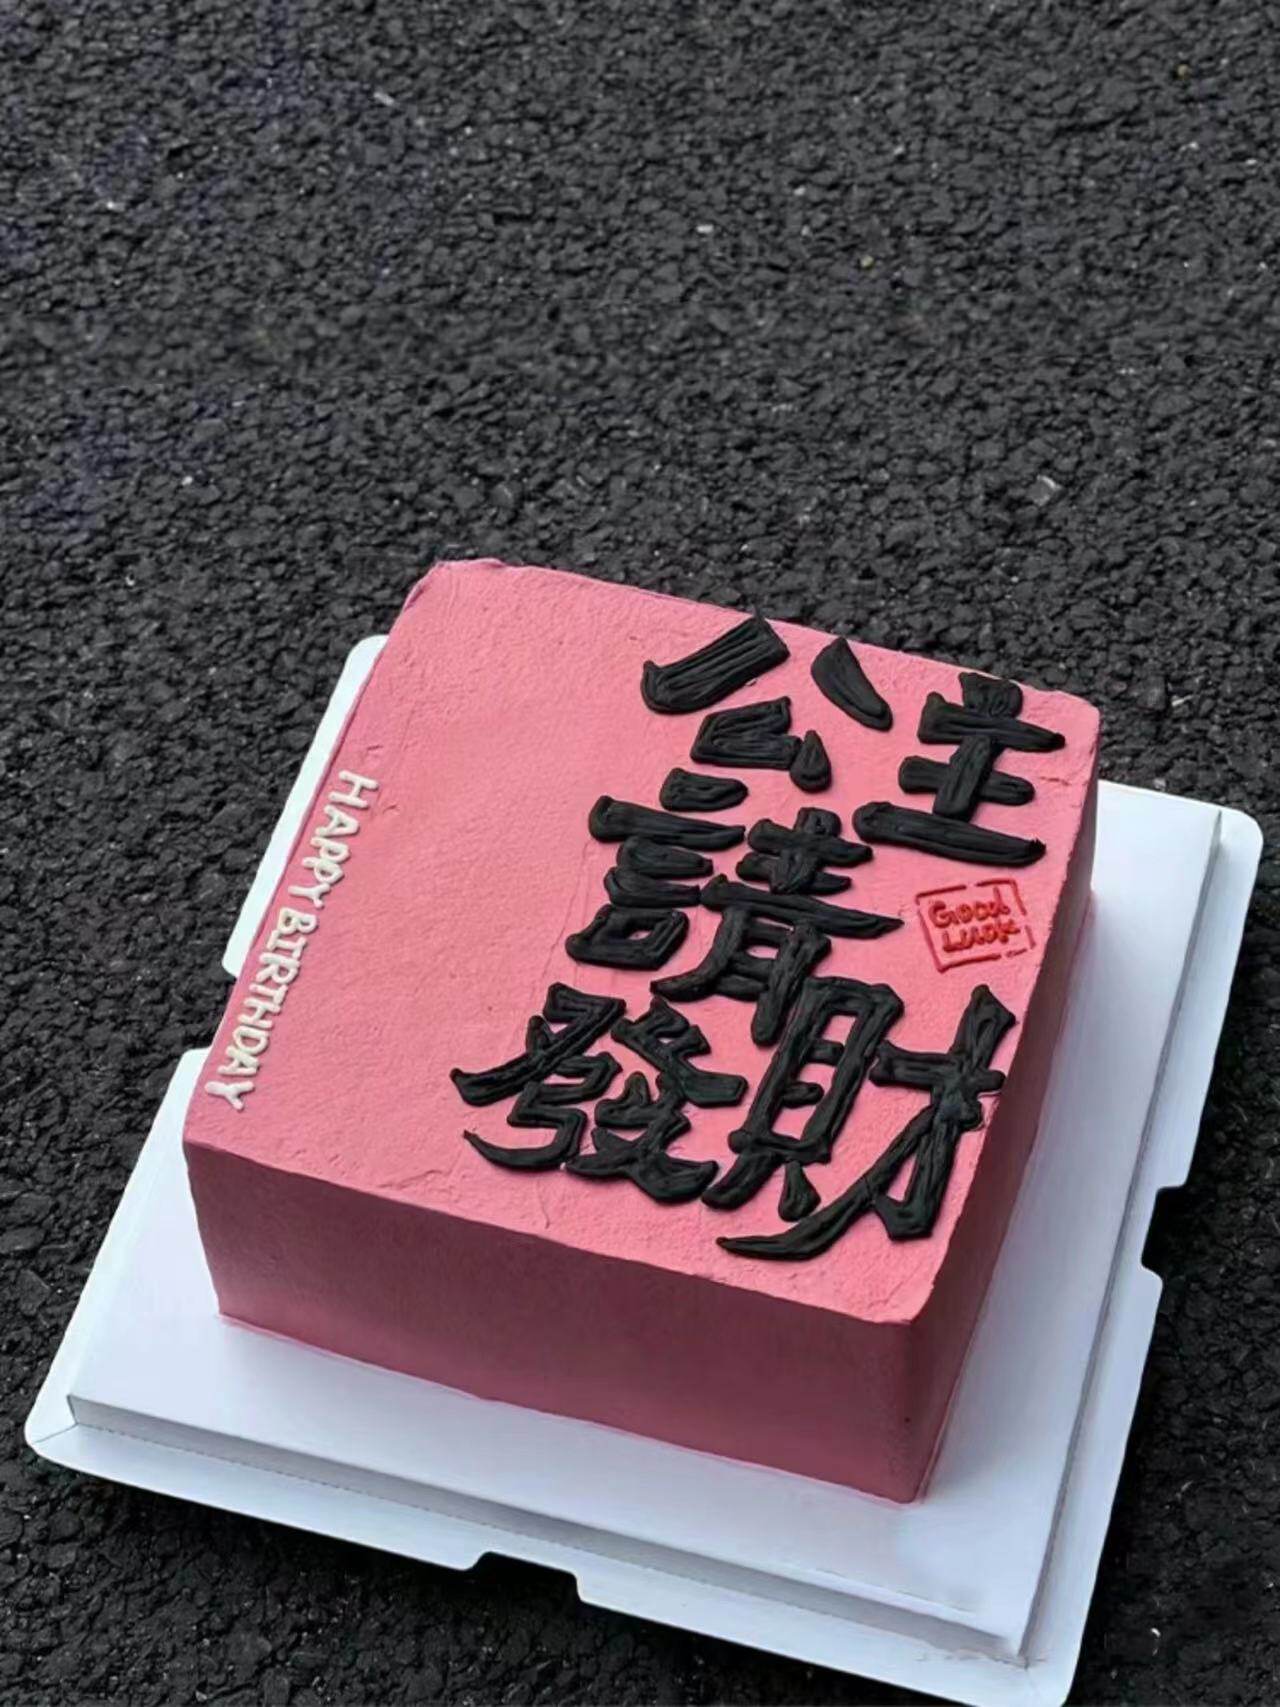 公主
請
發財
Good
Luck
HAPPY BIRTHDAY